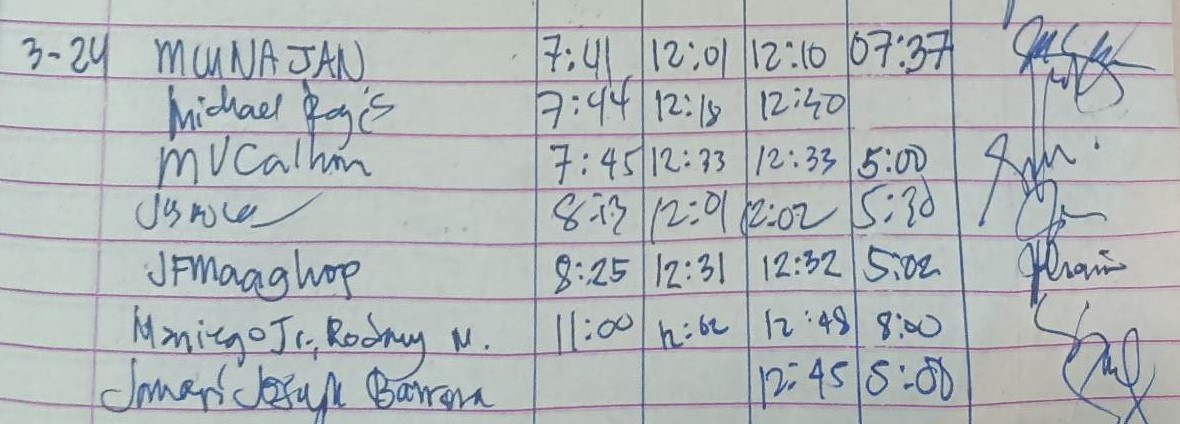 3-24 MUNAJAN 7:41 12:01 12:10 07:37
Michael 7:44 12:18 12:40
MVCalhon 7:45 12:33 12:33 5:00
8:13 12:01 12:02 5:30
JFMaaghop 8:25 12:31 12:32 5:02
Maniego Jr., Rodney M. 11:00 12:48 8:00
Jomari Joseph Barrera 12:45 5:00